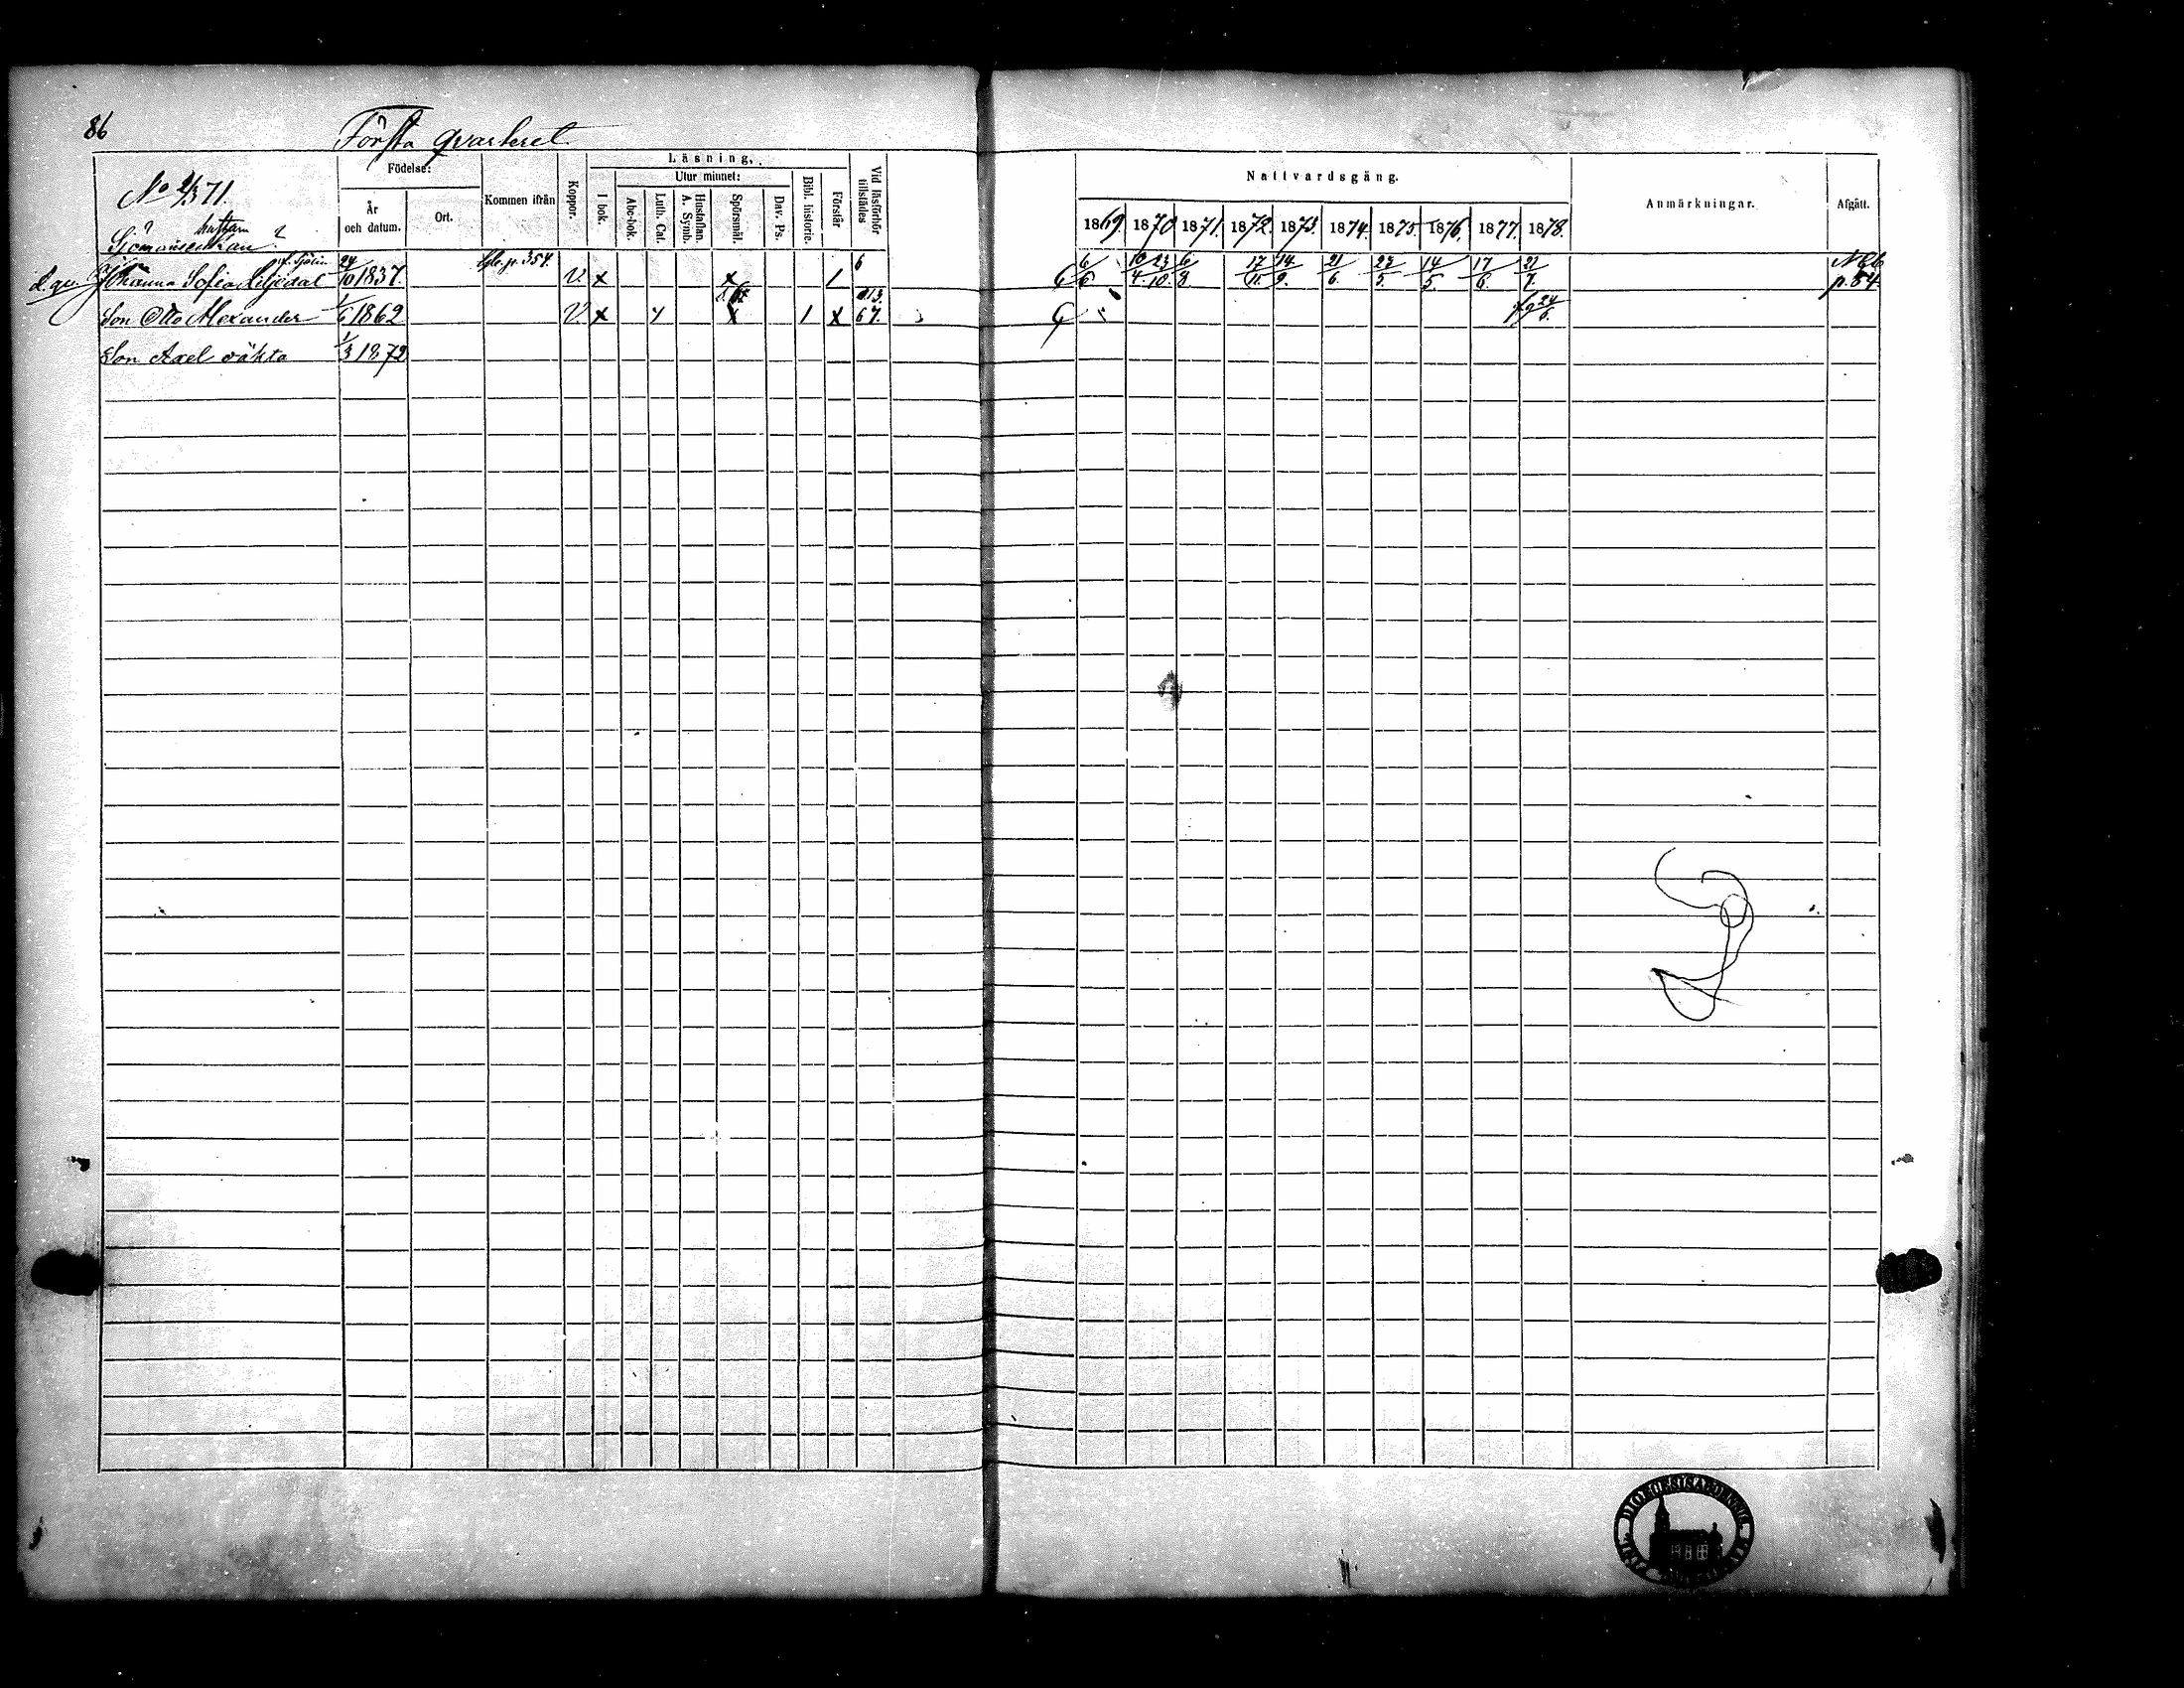 86
Första qvarteret
No 2/371.
Födelse:
År och datum.
Ort.
Kommen ifrån
Koppor.
Läsning,
I bok.
Utur minnet:
Abc-bok.
Luth. Cat.
Hustaflan. A. Symb.
Spörsmål.
Dav. Ps.
Bibl. historie.
Förstår
Vid läsförhör tillstädes
Nattvardsgång.
1869. 1870 1871. 1872. 1873. 1874. 1875. 1876. 1877. 1878.
Anmärkningar.
Afgått.
Johanna Sofia Liljedal f. Sjölin 24/10 1837. p. 354. V. x x 1 6 6/6 10/4. 23/10. 6/8 17/11. 14/9. 21/6. 23/5. 14/5. 17/6. 21/7. p. 84
Son Otto Alexander 1/6 1862 V. x x 1 x 67. 24/6.
Son Axel oäkta 1/3 1872